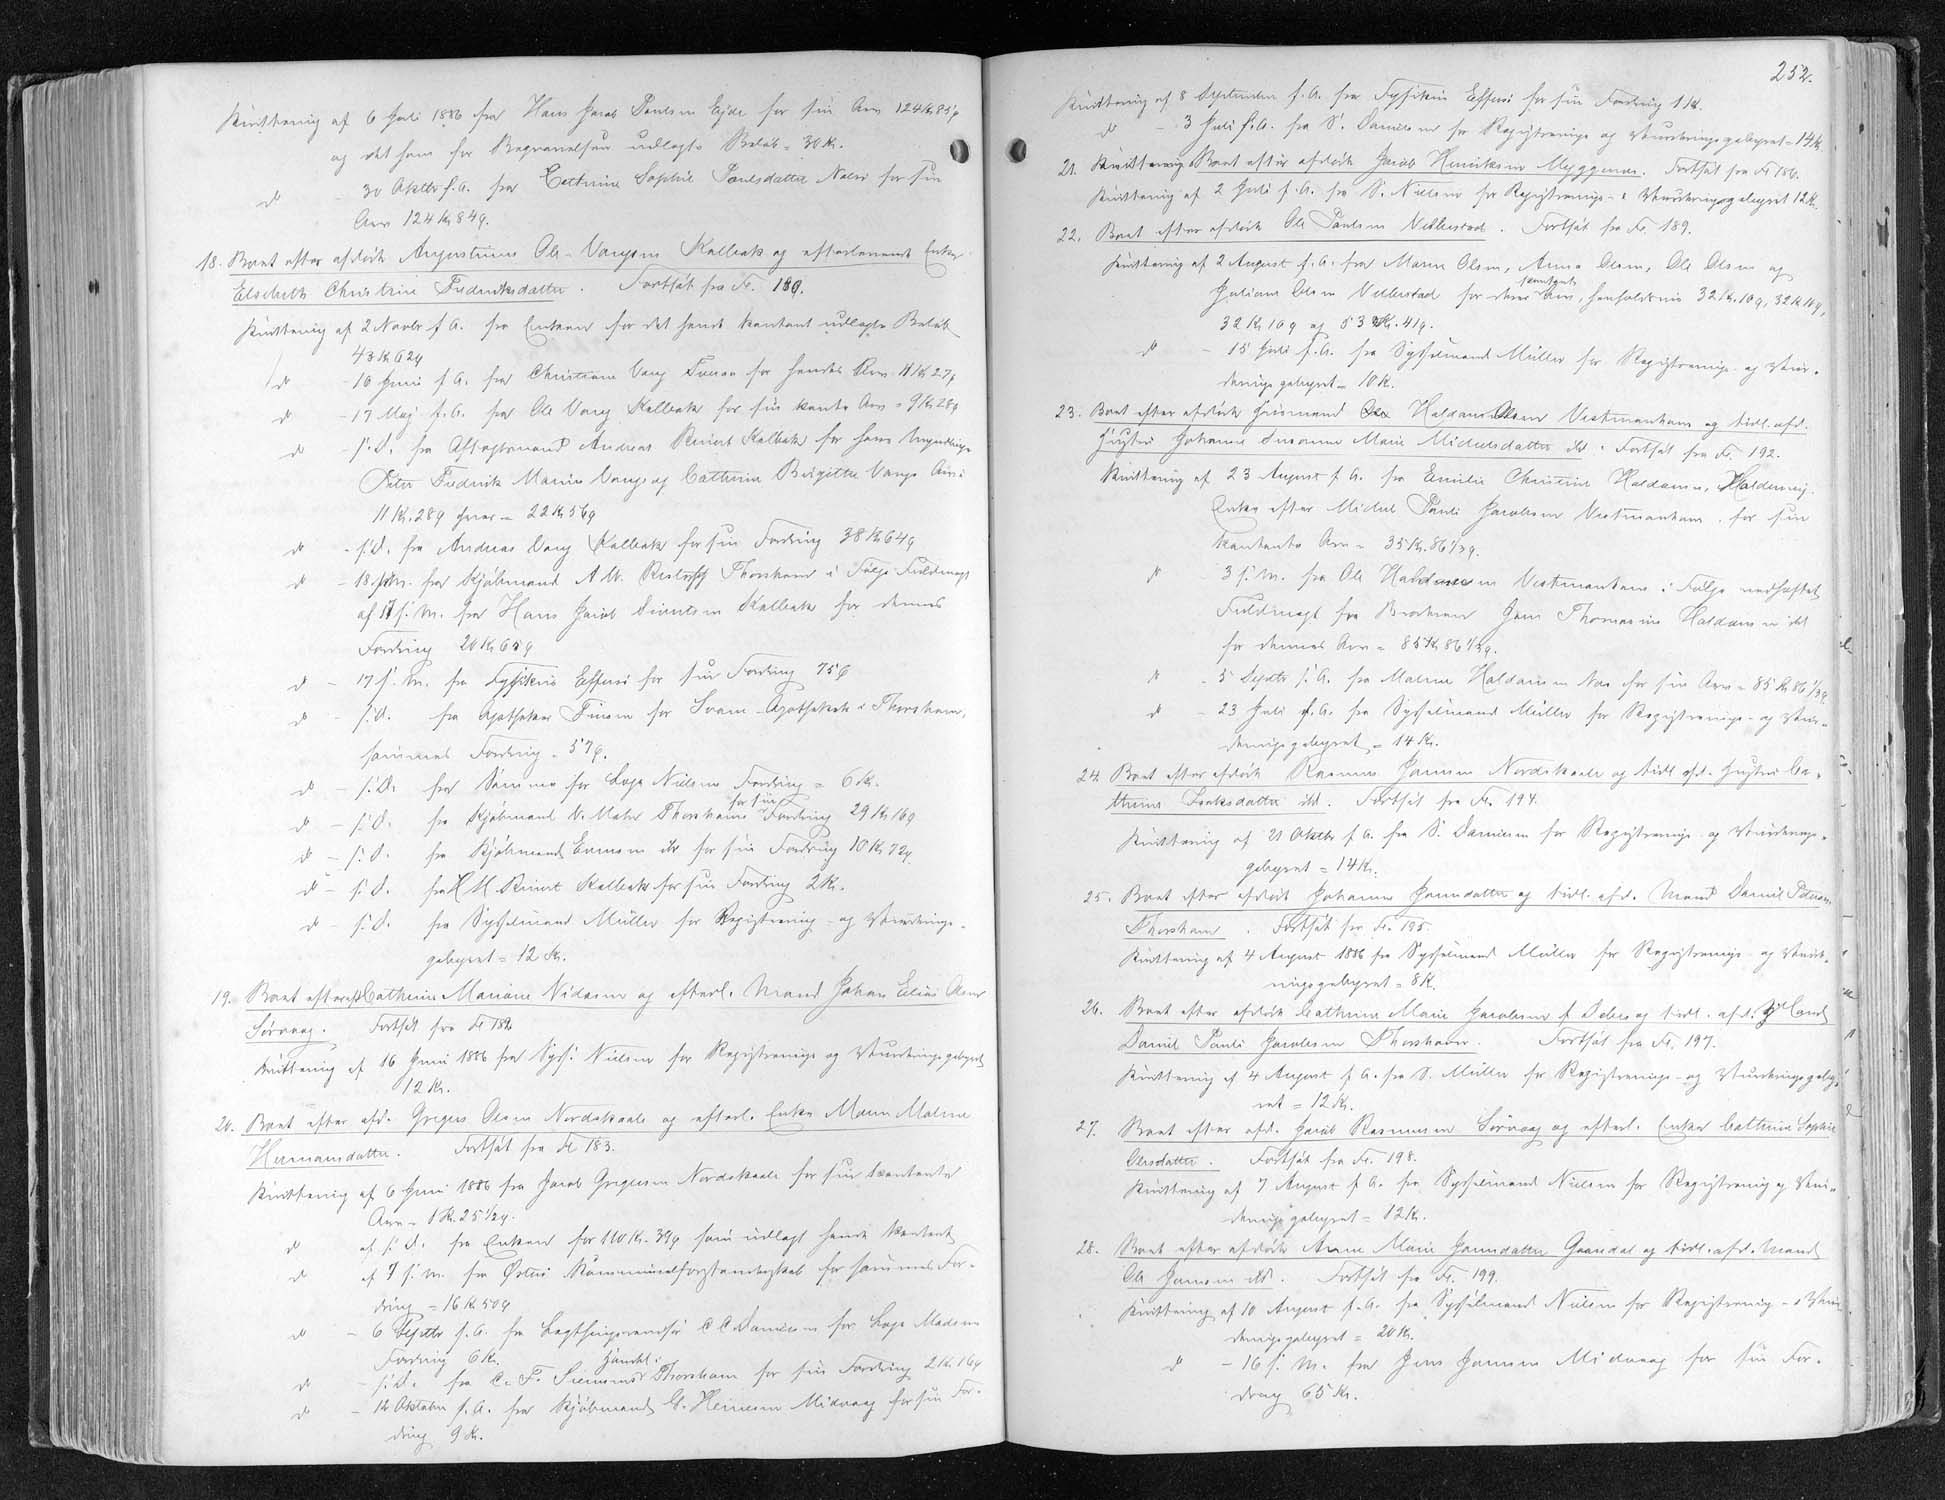 Kvittering af 6 Juli 1886 fra Hans Jacob Poulsen Ejde for sin Arv 124 Kr 85 ø
og det ham for Begravelsen udlagte Beløb = 30 Kr.
do - 30 Oktbr f. A. fra Cathrine Sophie Poulsdatter Nolsø for sin
Arv 124 Kr 84 ø.
18. Boet efter afdøde Augustinus Ole Vangsen Kalbak og efterlevende Enke
Elsebeth Christine Fredriksdatter. Fortsat fra Fr. 180.
Kvittering af 2 Novbr f A. fra Enken for det hende kontant udlagte Beløb
43 Kr 62 ø
do - 10 Juni f A. fra Christiane Vang for hendes Arv 11 Kr 27 ø
do - 17 Maj f. A. fra Ole Vang Kalbak for sin kontante Arv = 9 Kr 28 ø
do - s. D. fra Aftægtsmand Andreas Kalbak for hans Myndlinge
Peter Fredrik Marius Vang og Cathrine Birgitte Vangs Arv:
11 Kr. 28 ø hver = 22 Kr 56 ø
do - s. D. fra Andreas Vang Kalbak for sin Fordring 38 Kr 64 ø
do - 18 s. M. fra Kjøbmand A. W. Thorshavn i Følge Fuldmagt
af 17 s. M. fra Hans Jacob Kalbak for dennes
Fordring 20 Kr 65 ø
do - 17 s. M. fra Fysikus Effersø for sin Fordring 75 ø
do - s. D. fra Apotheker Finsen for Svane-Apotheket i Thorshavn,
sammes Fordring = 57 ø.
do - s. D. fra Samme for Læge Nielsens Fordring = 6 Kr.
do - s. D. fra Kjøbmand Thorshavn for sin Fordring 29 Kr 16 ø
do - s. D. fra Kjøbmand ibd for sin Fordring 10 Kr 72 ø
do - s. D. fra Kalbak for sin Fordring 2 Kr.
do - s. D. fra Sysselmand Müller for Registrerings- og Vurderings-
gebyret = 12 Kr.
19. Boet efter afd Cathrine Mariane og efterl. Mand Johan Elias
Sørvaag. Fortsat fra Fr 182
Kvittering af 16 Juni 1886 fra Syss. Nielsen for Registrerings og Vurderingsgebyret
12 Kr.
20. Boet efter afd. Gregers Olsen Nordskaale og efterl. Enke Maren Malene
Hermansdatter. Fortsat fra Fr 183.
Kvittering af 6 Juni 1886 fra Jacob Gregersen Nordskaale for sin kontante
Arv = 1 Kr. 25 1/2 ø.
do af s. D. fra Enken for 110 Kr. 39 ø som udlagt hende kontant
do af 7 s. M. fra Østerø Kommuneforstanderskab for sammes For-
dring = 16 Kr 50 ø
do - 6 Septbr f. A. fra Lagthingsmand C C Danielsen for Læge Madsens
Fordring 6 Kr.
do - s. D. fra C. F. Siemsens Handel: Thorshavn for sin Fordring 2 Kr 16 ø
do - 12 Oktober f. A. fra Kjøbmand G. Heinesen Midvaag for sin For-
dring 9 Kr.
252.
Kvittering af 8 September f. A. fra Fysikus Effersø for sin Fordring 1 Kr.
do - 3 Juli f. A. fra S. Danielsen for Registrerings og Vurderingsgebyret = 14 Kr.
21. Kvittering Boet efter afdøde Jacob Henriksen Myggenæs. Fortsat fra Fr 186.
Kvittering af 2 Juli f. A. fra S. Nielsen for Registrerings- & Vurderingsgebyret 12 Kr.
22. Boet efter afdøde Ole Poulsen Velbestad. Fortsat fra Fr. 189.
Kvittering af 2 August f. A. fra Maren Olsen, Anna Olsen, Ole Olsen og
Juliane Olsen Velbestad for deres kontante Arv, henholdsvis 32 Kr. 10 ø, 32 Kr 10 ø,
32 Kr 10 ø og 53 Kr. 41 ø.
do - 15 Juli f. A. fra Sysselmand Müller for Registrerings- og Vur-
deringsgebyret = 10 Kr.
23. Boet efter afdøde Huusmand Haldan Olsen Vestmanhavn og tidl. afd.
Hustru Johanne Susanne Marie Michelsdatter ibd. Fortsat fra Fr. 192.
Kvittering af 23 August f A. fra Emilie Christine Haldansen, Haldersvig.
Enke efter Michel Pauli Jacobsen Vestmanhavn, for sin
kontante Arv = 35 Kr. 86 1/3 ø.
do 3 s. M. fra Ole Haldansen Vestmanhavn i Følge vedhæftet
Fuldmagt fra Broderen Jens Thomasius Haldansen ibd
for dennes Arv = 85 Kr 86 1/3 ø.
do - 5 Septbr f. A. fra Malene Haldansen for sin Arv = 85 Kr 86 1/3 ø.
do - 23 Juli f. A. fra Sysselmand Müller for Registrerings- og Vur-
deringsgebyret = 14 Kr.
24. Boet efter afdøde Rasmus Joensen Nordskaale og tidl afd. Hustru Ca-
thrine Isaksdatter ibd. Fortsat fra Fr. 194.
Kvittering af 21 Oktbr f A. fra S. Danielsen for Registrerings- og Vurderings-
gebyret = 14 Kr.
25. Boet efter afdøde Johanne Joensdatter og tidl. afd. Mand Daniel Petersen
Thorshavn. Fortsat fra Fr. 195.
Kvittering af 4 August 1886 fra Sysselmand Müller for Registrerings- og Vurde-
ringsgebyret = 8 Kr.
26. Boet efter afdøde Cathrine Marie Jacobsen f. Debes og tidl. afd. Mand
Daniel Pauli Jacobsen Thorshavn. Fortsat fra Fr. 197.
Kvittering af 4 August f. A. fra S. Müller for Registrerings- og Vurderingsgeby-
ret = 12 Kr.
27. Boet efter afd. Jacob Rasmussen Sørvaag og efterl. Enke Cathrine Sophie
Olesdatter. Fortsat fra Fr. 198.
Kvittering af 7 August f A. fra Sysselmand Nielsen for Registrering og Vur-
deringsgebyret = 12 Kr.
28. Boet efter afdøde Anne Marie Joensdatter Gaasedal og tidl. afd. Mand
Ole Joensen ibd. Fortsat fra Fr. 199.
Kvittering af 10 August f. A. fra Sysselmand Nielsen for Registrering- & Vur-
deringsgebyret = 20 Kr.
do - 16 s. M. fra Jens Joensen Midvaag for sin For-
dring 65 Kr.